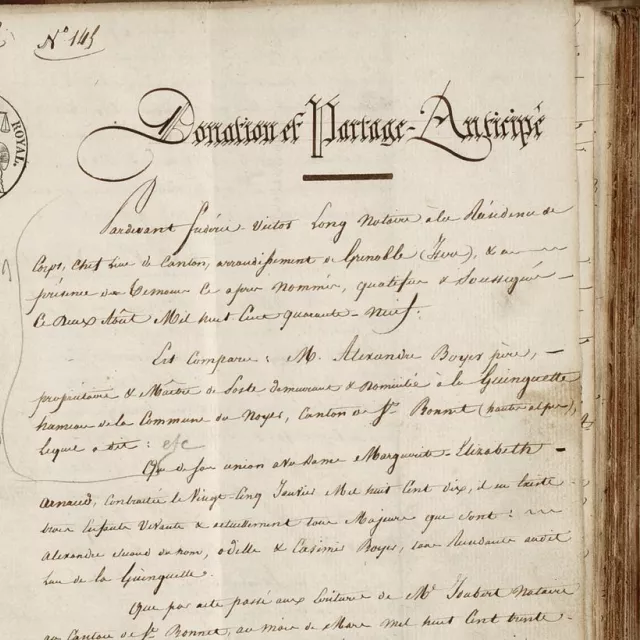 N° 145
ROYAL.
Donation et Partage-Anticipé
Pardevant Frédéric-Victor Long Notaire à la Résidence de
Corps, Chef lieu de Canton, arrondissement de Grenoble (Isère), & en
présence des Temoins Ci après Nommés, qualifiés & Soussignés
Ce Deux Août Mil huit Cent quarante-Neuf:
Est Comparu: M. Alexandre Boyer père,
propriétaire & Maître de Poste demeurant & domicilié à la Guinguette
hameau de la Commune du Noyer, Canton de St Bonnet (hautes alpes),
Lequel a dit:
Que de son union avec Dame Marguerite-Elizabeth
Arnaud, Contractée le Vingt-Cinq Janvier Mil huit Cent dix, il existe
trois Enfants Vivants & actuellement tous Majeurs que sont:
Alexandre second du nom, odille & Casimir Boyer, tous Résidants audit
lieu de la Guinguette.
Que par acte passé aux Ecritures de Me Joubert Notaire
au Canton de St Bonnet, au mois de Mars mil huit Cent trente